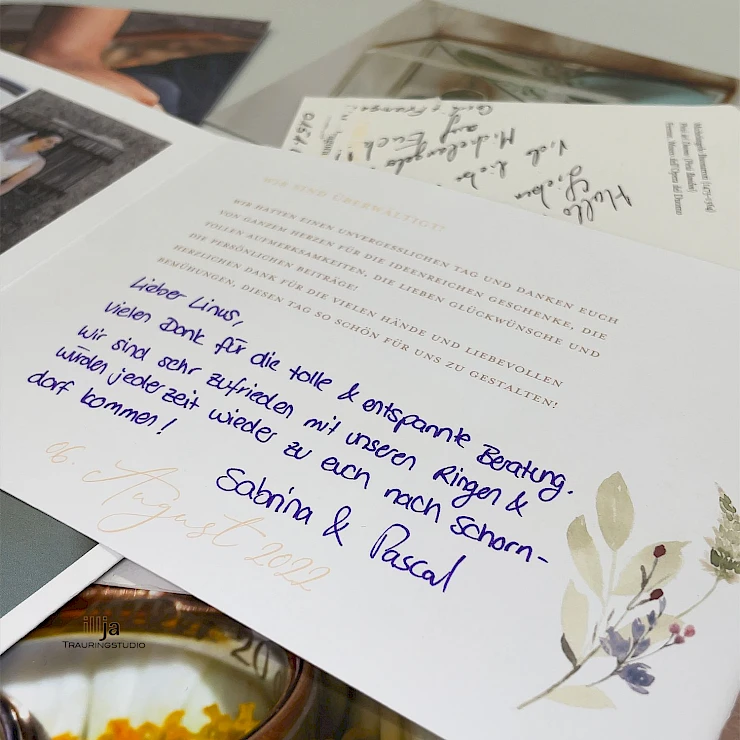 WIR SIND ÜBERWÄLTIGT!
WIR HATTEN EINEN UNVERGESSLICHEN TAG UND DANKEN EUCH
VON GANZEM HERZEN FÜR DIE IDEENREICHEN GESCHENKE, DIE
TOLLEN AUFMERKSAMKEITEN, DIE LIEBEN GLÜCKWÜNSCHE UND
DIE PERSÖNLICHEN BEITRÄGE!
HERZLICHEN DANK FÜR DIE VIELEN HÄNDE UND LIEBEVOLLEN
BEMÜHUNGEN, DIESEN TAG SO SCHÖN FÜR UNS ZU GESTALTEN!
Lieber Linus,
vielen Dank für die tolle & entspannte Beratung.
Wir sind sehr zufrieden mit unseren Ringen &
würden jederzeit wieder zu euch nach Schorn-
dorf kommen!
Sabrina & Pascal
06. August 2022
Hallo
Lieben
liebe
Michelangelo
auf Euch
Michelangelo Buonarroti (1475-1564)
Pietà del Duomo (Pietà Bandini)
Firenze, Museo dell'Opera del Duomo
illja
TRAURINGSTUDIO
20